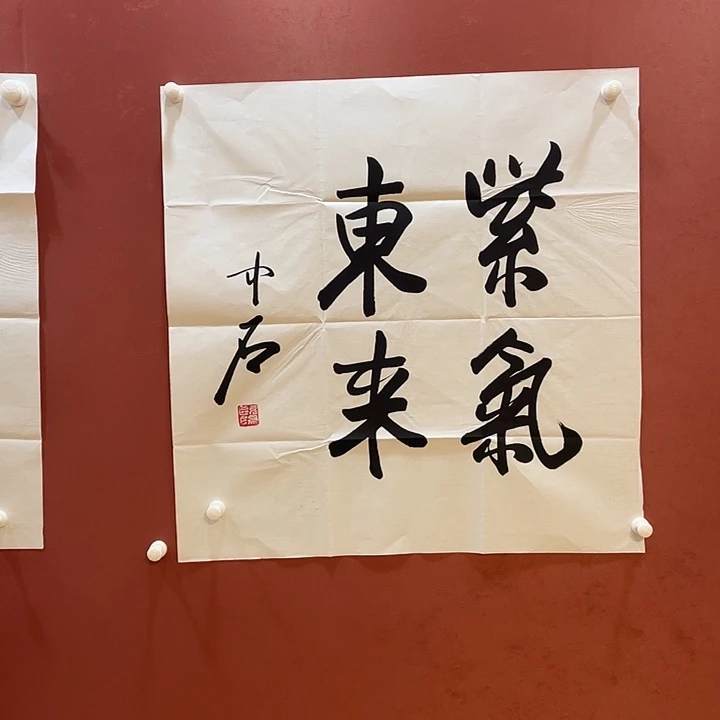 紫氣
東来
中石